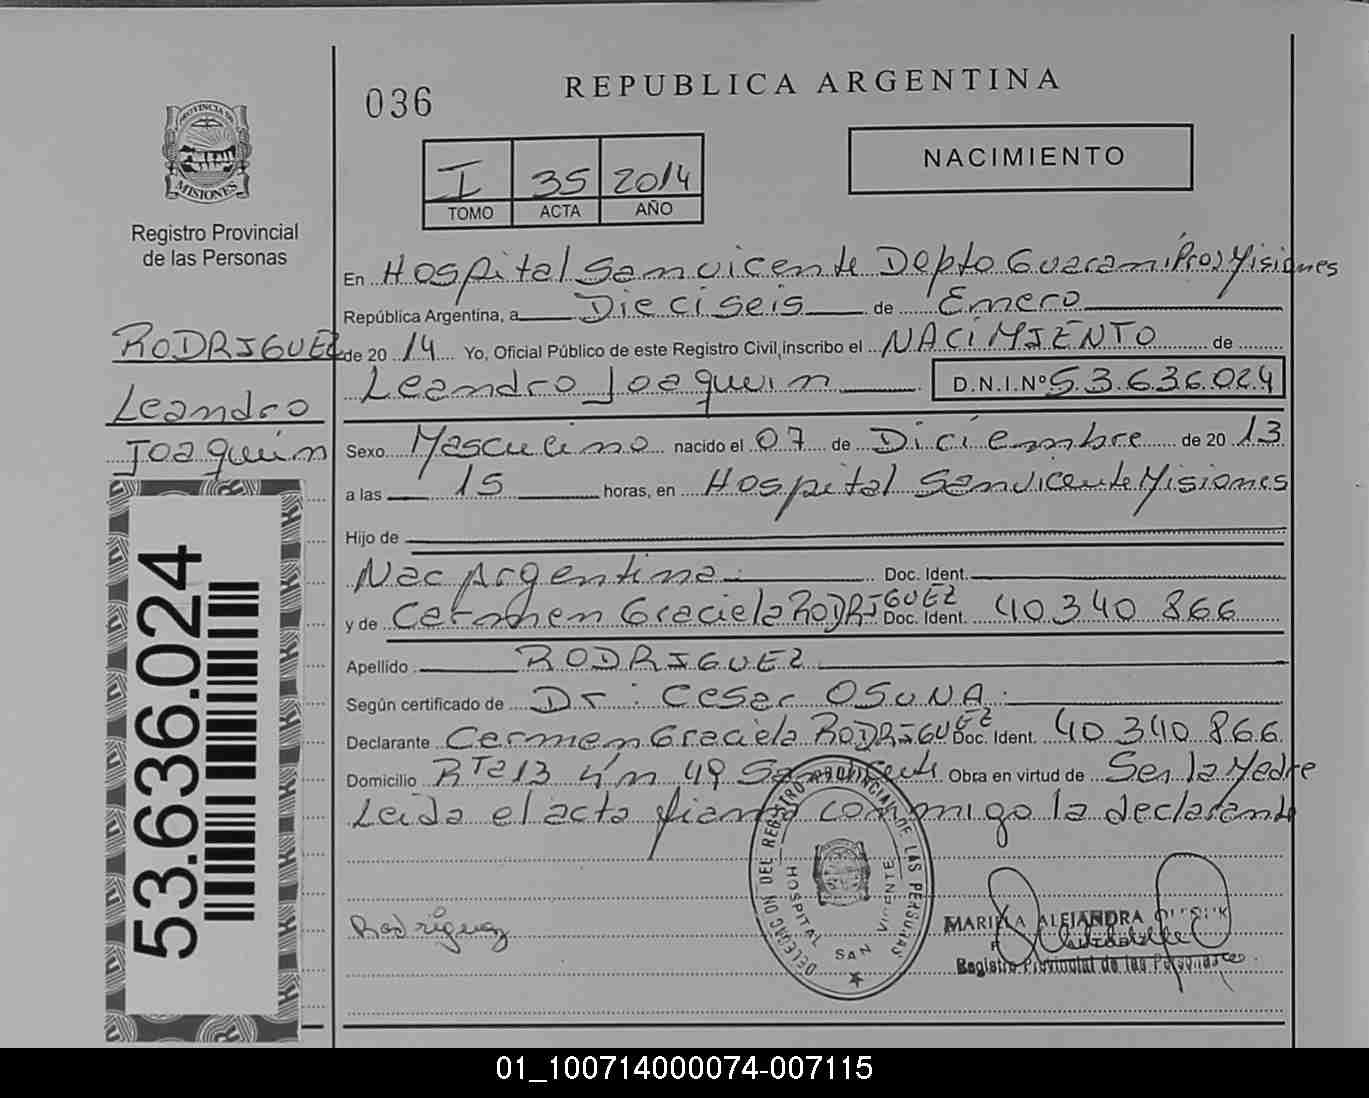 036
REPUBLICA ARGENTINA
PROVINCIA DE
MISIONES
Registro Provincial
de las Personas
I 35 2014
TOMO ACTA AÑO
NACIMIENTO
En Hospital San vicente Depto Guarani Pro) Misiones
República Argentina, a Dieciseis de Enero
de 20 14 Yo, Oficial Público de este Registro Civil, inscribo el NACIMIENTO de
Leandro Joaquin D.N.I.Nº 53.636.024
RODRIGUEZ
Leandro
Joaquin
Sexo Masculino nacido el 07 de Diciembre de 20 13
a las 15 horas, en Hospital San vicente Misiones
Hijo de
Nac Argentina Doc. Ident.
y de Carmen Graciela RODRIGUEZ Doc. Ident. 40 340 866
Apellido RODRIGUEZ
Según certificado de Dr: Cesar OSUNA
Declarante Carmen Graciela RODRIGUEZ Doc. Ident. 40 340 866
Domicilio RTa 13 km 49 San Vicente Obra en virtud de Ser la Madre
Leida el acta firma conmigo la declarante
53.636.024
Rodriguez
DELEGACION DEL REGISTRO PROVINCIAL DE LAS PERSONAS
HOSPITAL SAN VICENTE
MARIELA ALEJANDRA
Registro Provincial de las Personas
01_100714000074-007115